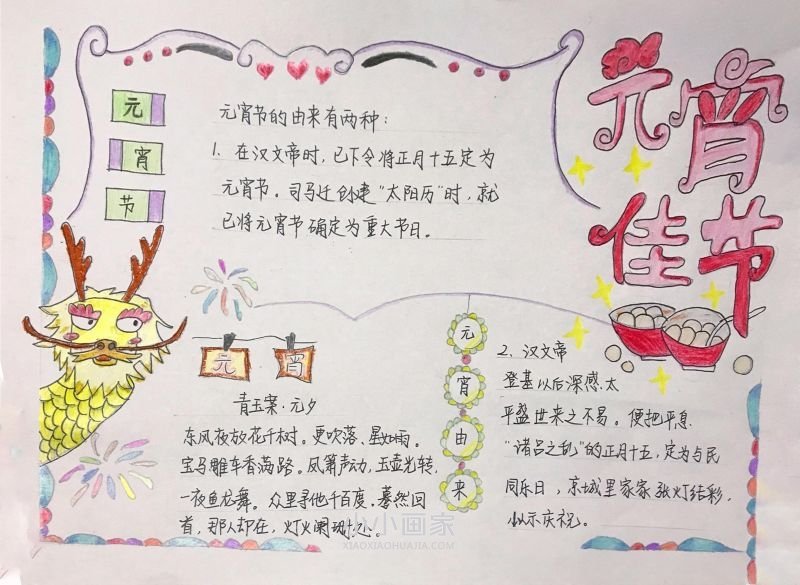 元宵佳节
元
宵
节
元宵节的由来有两种:
1. 在汉文帝时,已下令将正月十五定为
元宵节。司马迁创建“太阳历”时,就
已将元宵节确定为重大节日。
元 宵
青玉案·元夕
东风夜放花千树。更吹落、星如雨。
宝马雕车香满路。凤箫声动,玉壶光转,
一夜鱼龙舞。众里寻他千百度。蓦然回
首,那人却在,灯火阑珊处。
元
宵
由
来
2、汉文帝
登基以后深感太
平盛世来之不易。便把平息
“诸吕之乱”的正月十五,定为与民
同乐日,京城里家家张灯结彩,
以示庆祝。
小小画家
XIAOXIAOHUAJIA.COM